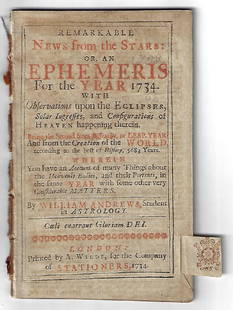 REMARKABLE
NEWS from the STARS:
OR, AN
EPHEMERIS
For the YEAR 1734.
WITH
Observations upon the ECLIPSES,
Solar Ingresses, and Configurations of
HEAVEN happening therein.
Being the Second from Bissextile, or LEAP-YEAR
And from the Creation of the WORLD,
according to the best of History, 5683 Years.
WHEREIN
You have an Account of many Things about
the Heavenly Bodies, and their Portents, in
the same YEAR with some other very
Considerable MATTERS.
By WILLIAM ANDREWS, Student
in ASTROLOGY.
Cœli enarrant Gloriam DEI.
LONDON:
Printed by A. WILDE, for the Company
of STATIONERS, 1734.